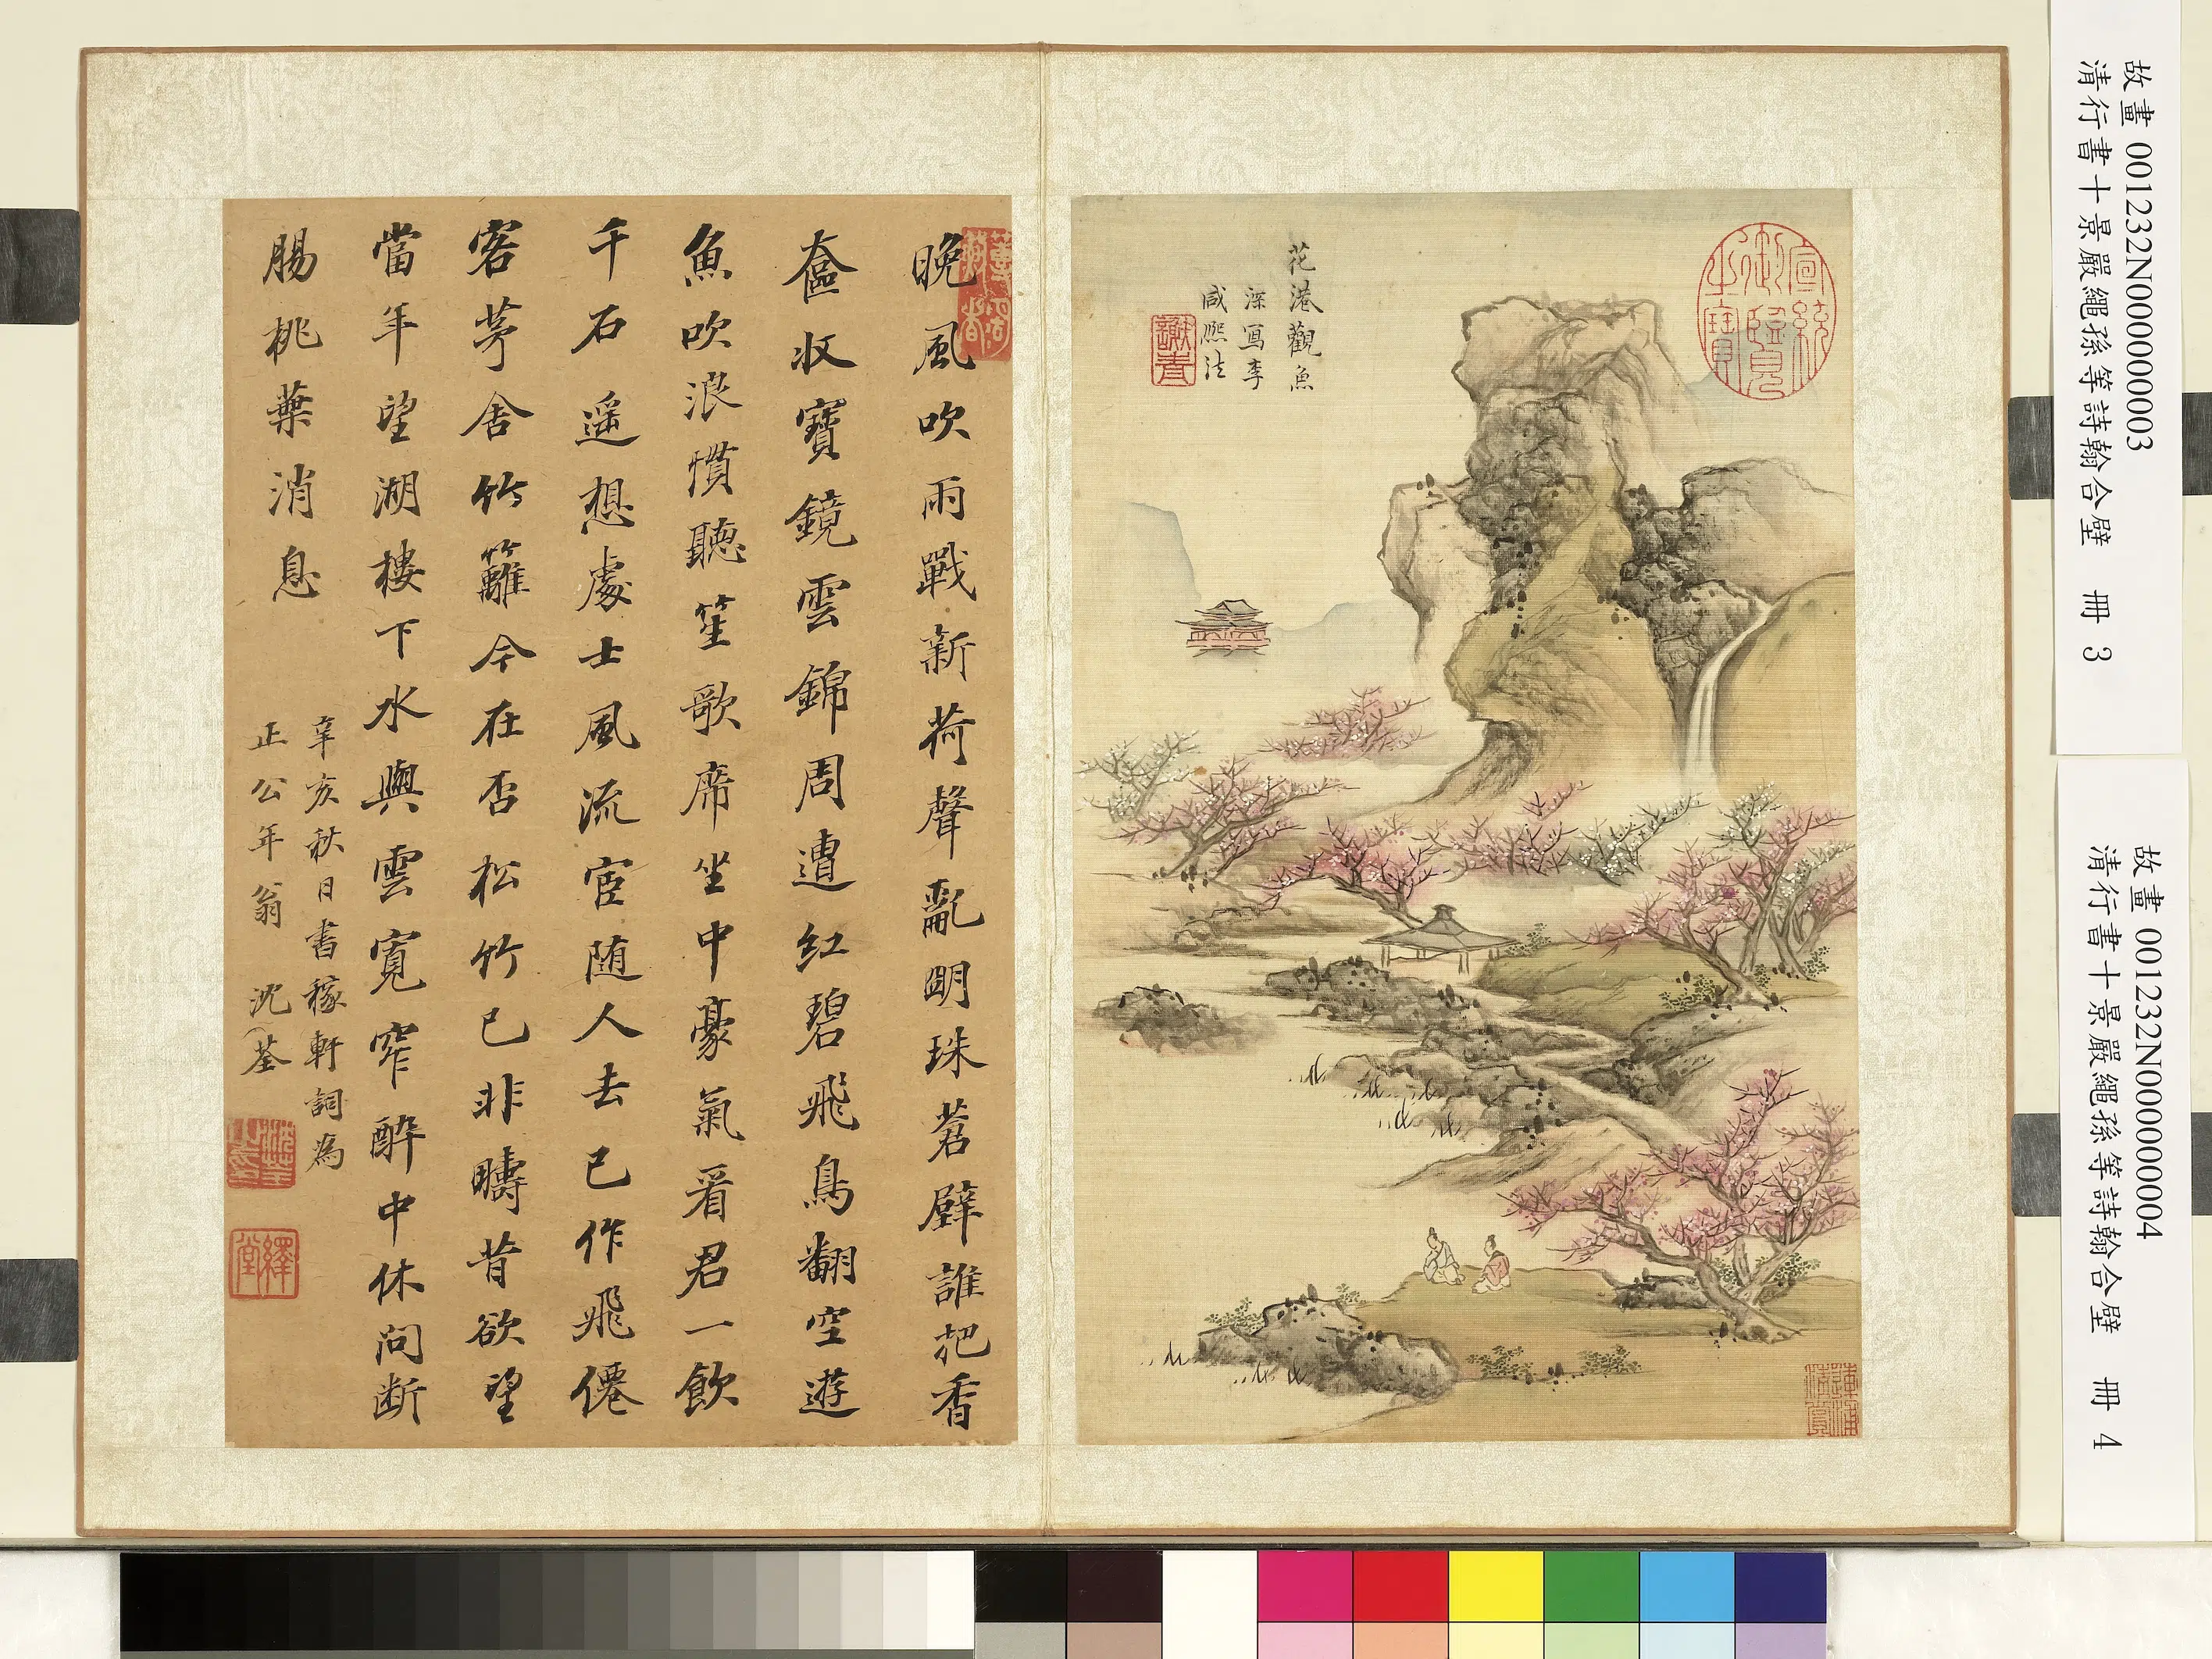 故畫 001232N000000003
清行書十景嚴繩孫等詩翰合壁 冊 3
故畫 001232N000000004
清行書十景嚴繩孫等詩翰合壁 冊 4
宣統御覽之寶
花港觀魚
深冩李
咸熙法
晚風吹雨戰新荷聲亂明珠蒼璧誰把香
奩収寶鏡雲錦周遭紅碧飛鳥翻空遊
魚吹浪慣聽笙歌席坐中豪氣看君一飲
千石遥想處士風流宦随人去已作飛僊
客茅舍竹籬今在否松竹已非疇昔欲望
當年望湖樓下水與雲寬窄醉中休問断
腸桃葉消息
辛亥秋日書稼軒詞為
正公年翁 沈荃
繹堂